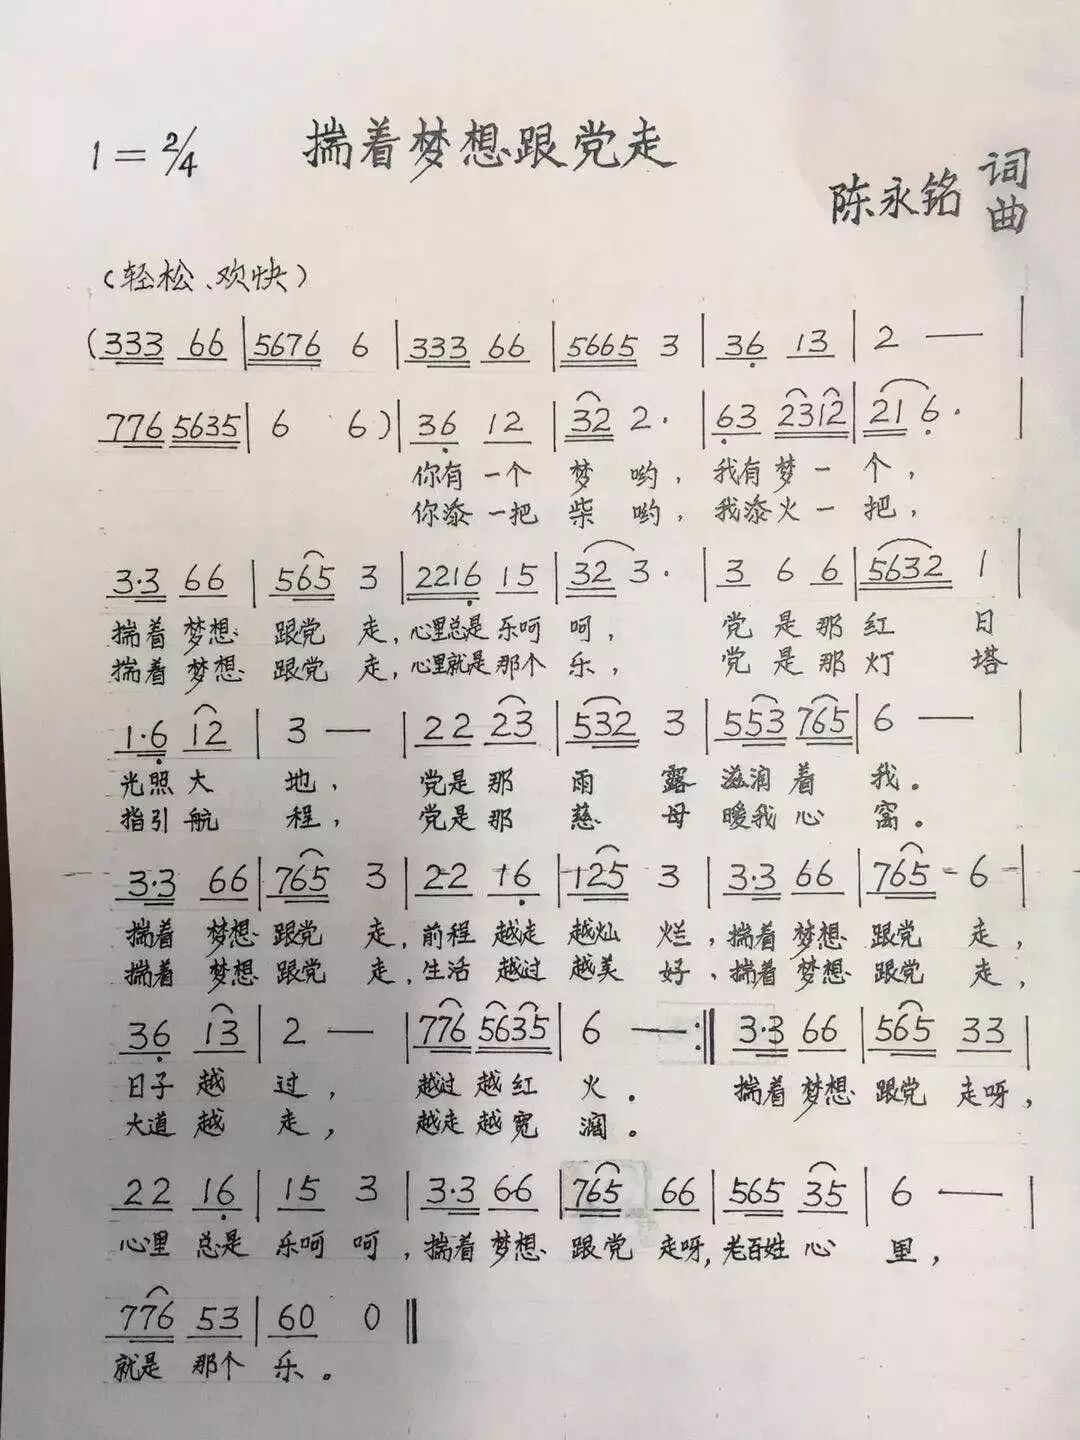 揣着梦想跟党走
1=2/4
陈永铭 词曲
(轻松、欢快)
(333 66|5676 6|333 66|5665 3|36 13|2 —|
776 5635|6 6)|36 12|32 2·|63 2312|21 6·
你有一个 梦 哟，我有梦一 个，
你添一把 柴 哟，我添火一 把，
3·3 66|565 3|2216 15|32 3·|3 6 6|5632 1|
揣着 梦想 跟党 走，心里总是 乐呵 呵， 党 是 那 红 日
揣着 梦想 跟党 走，心里就是 那个 乐， 党 是 那 灯 塔
1·6 12|3 —|22 23|532 3|553 765|6 —|
光照 大 地， 党是 那 雨 露 滋润 着 我。
指引 航 程， 党是 那 慈 母 暖我 心 窝。
3·3 66|765 3|22 16|125 3|3·3 66|765 6|
揣着 梦想 跟党 走，前程 越走 越灿 烂，揣着 梦想 跟党 走，
揣着 梦想 跟党 走，生活 越过 越美 好，揣着 梦想 跟党 走，
36 13|2 —|776 5635|6 —:‖3·3 66|565 33|
日子 越 过， 越过 越红 火。 揣着 梦想 跟党 走呀，
大道 越 走， 越走 越宽 阔。
22 16|15 3|3·3 66|765 66|565 35|6 —|
心里 总是 乐呵 呵，揣着 梦想 跟党 走呀，老百姓 心 里，
776 53|60 0‖
就是 那个 乐。